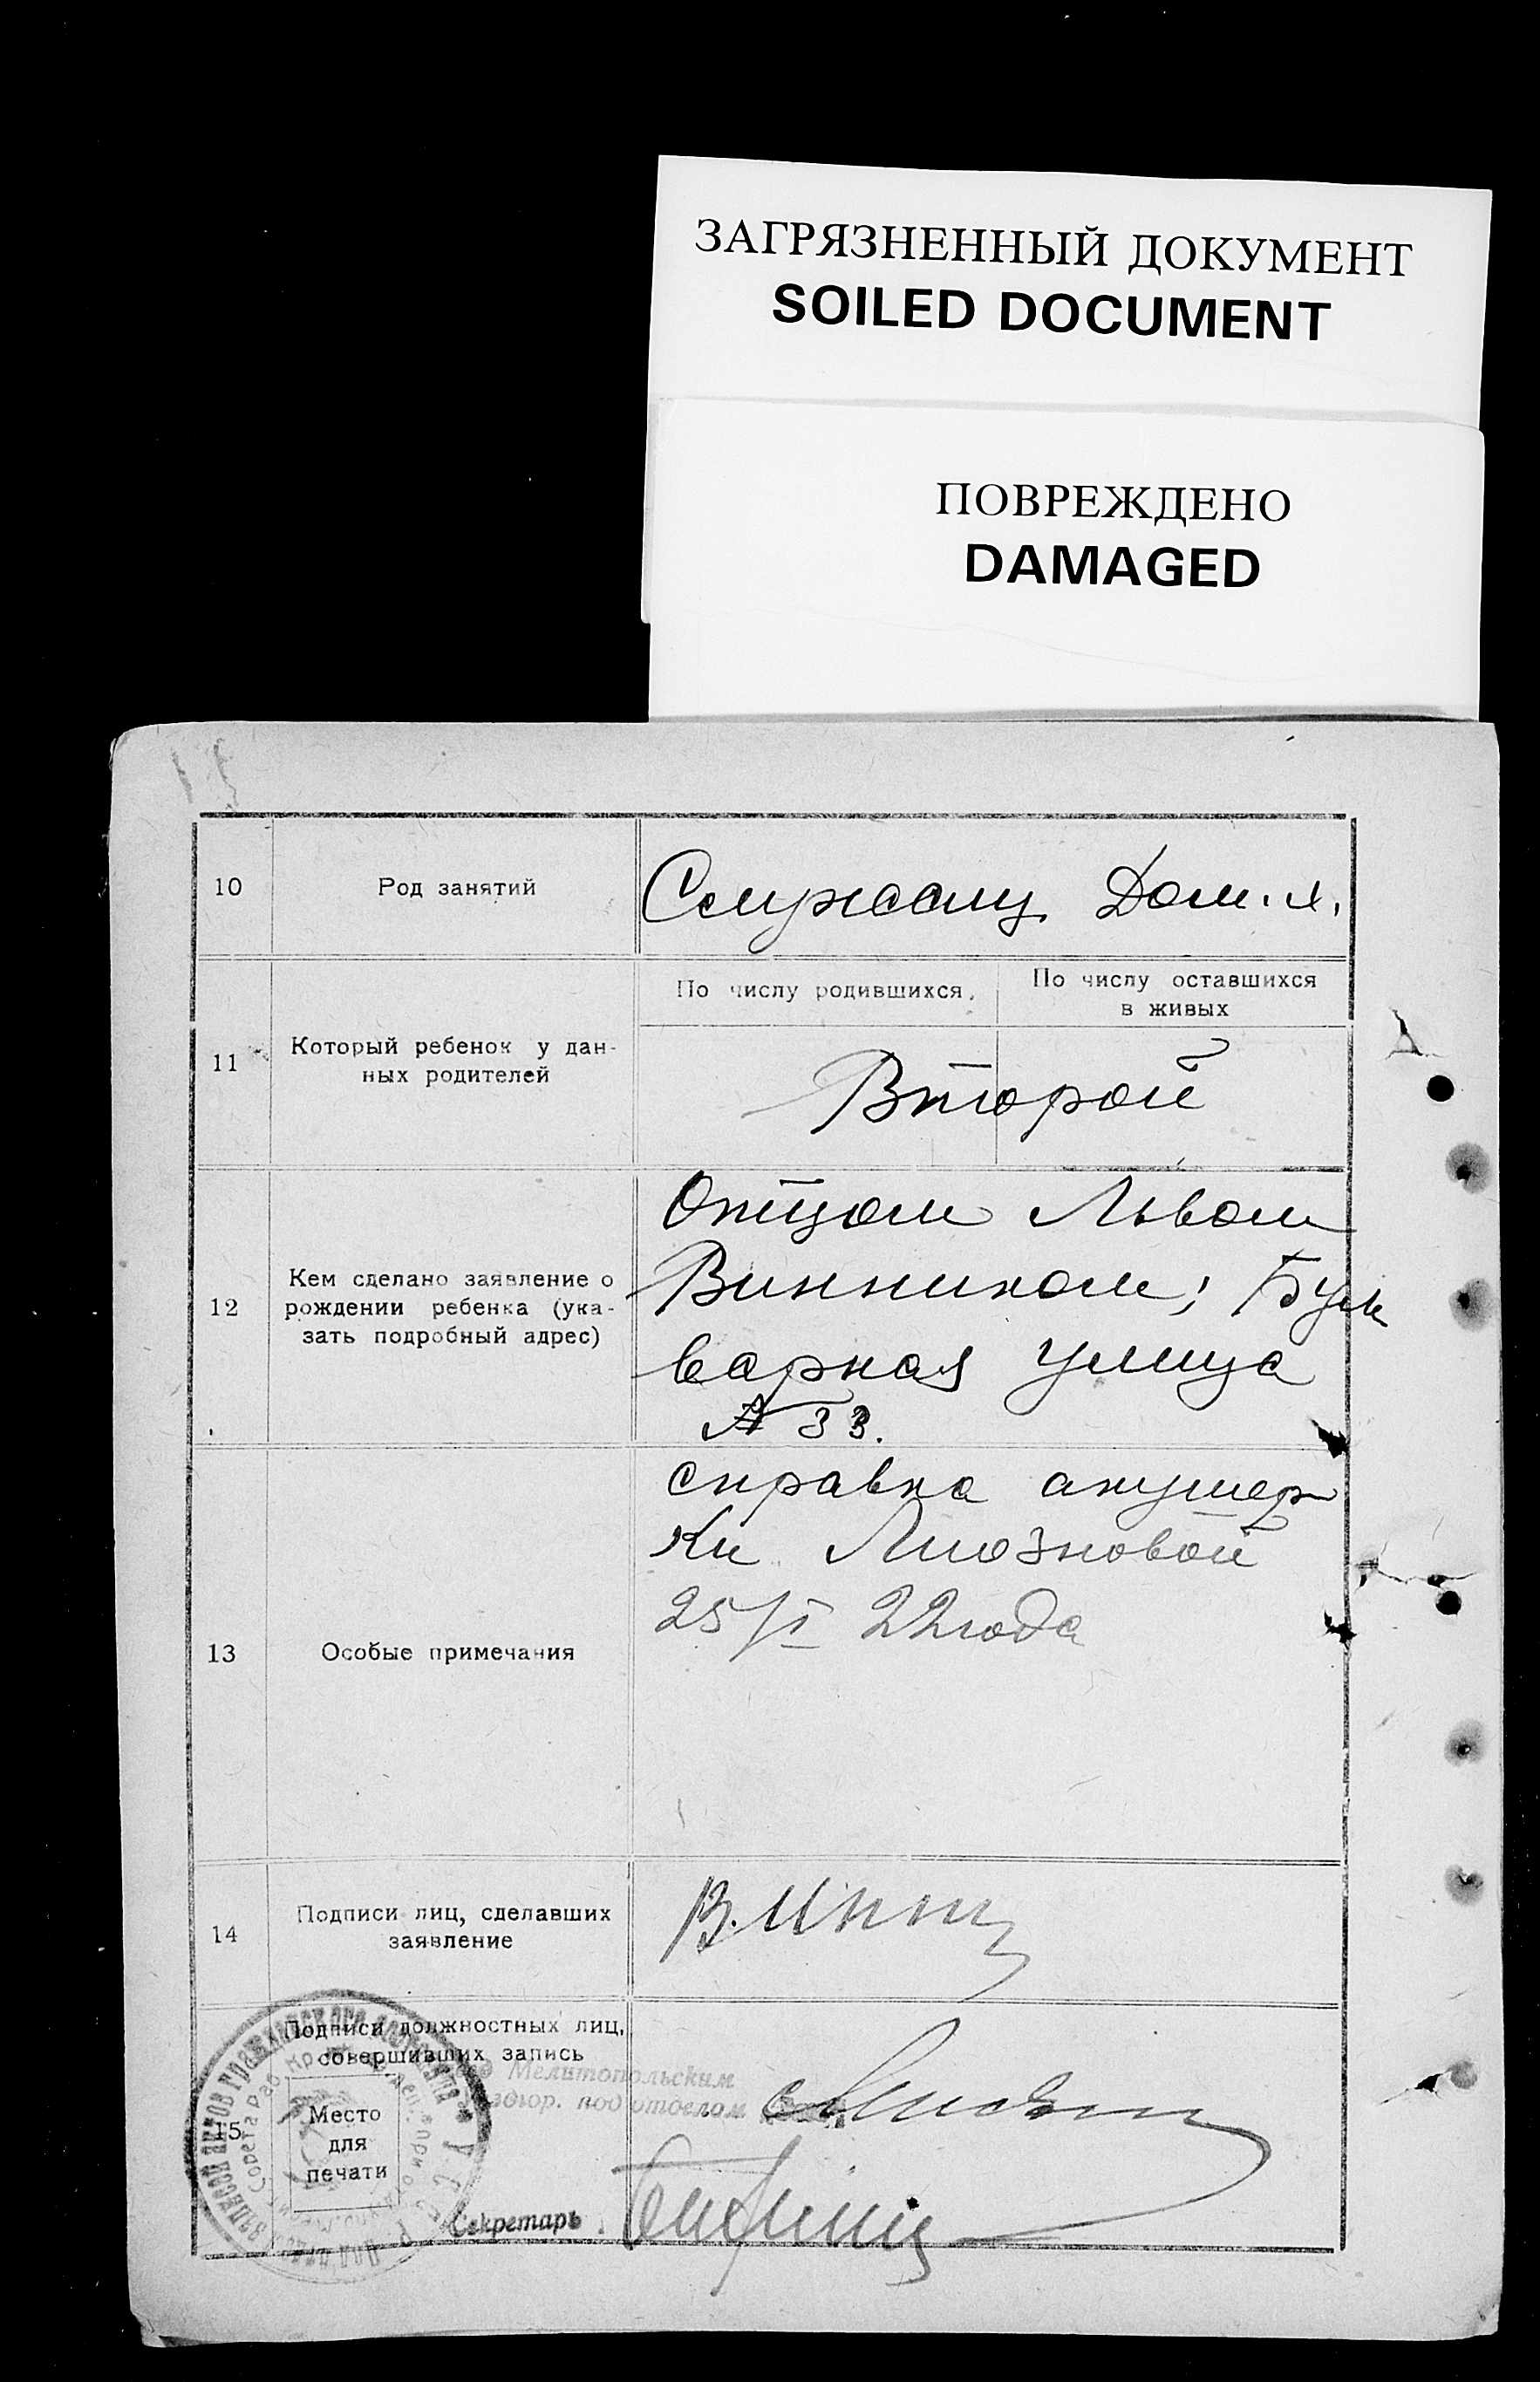 ЗАГРЯЗНЕННЫЙ ДОКУМЕНТ
SOILED DOCUMENT
ПОВРЕЖДЕНО
DAMAGED
10
Род занятий
Дом. х.
11
Который ребенок у дан-
ных родителей
По числу родившихся.
По числу оставшихся
в живых
Второй
12
Кем сделано заявление о
рождении ребенка (ука-
зать подробный адрес)
Отцом Львом
Винником; Буль
варная улица
№ 33.
13
Особые примечания
справка акушер
ки Лиозновой
25/I 22 года
14
Подписи лиц, сделавших
заявление
15
Подписи должностных лиц,
совершивших запись
Мелитопольским
под'отделом
Место
для
печати
Секретарь